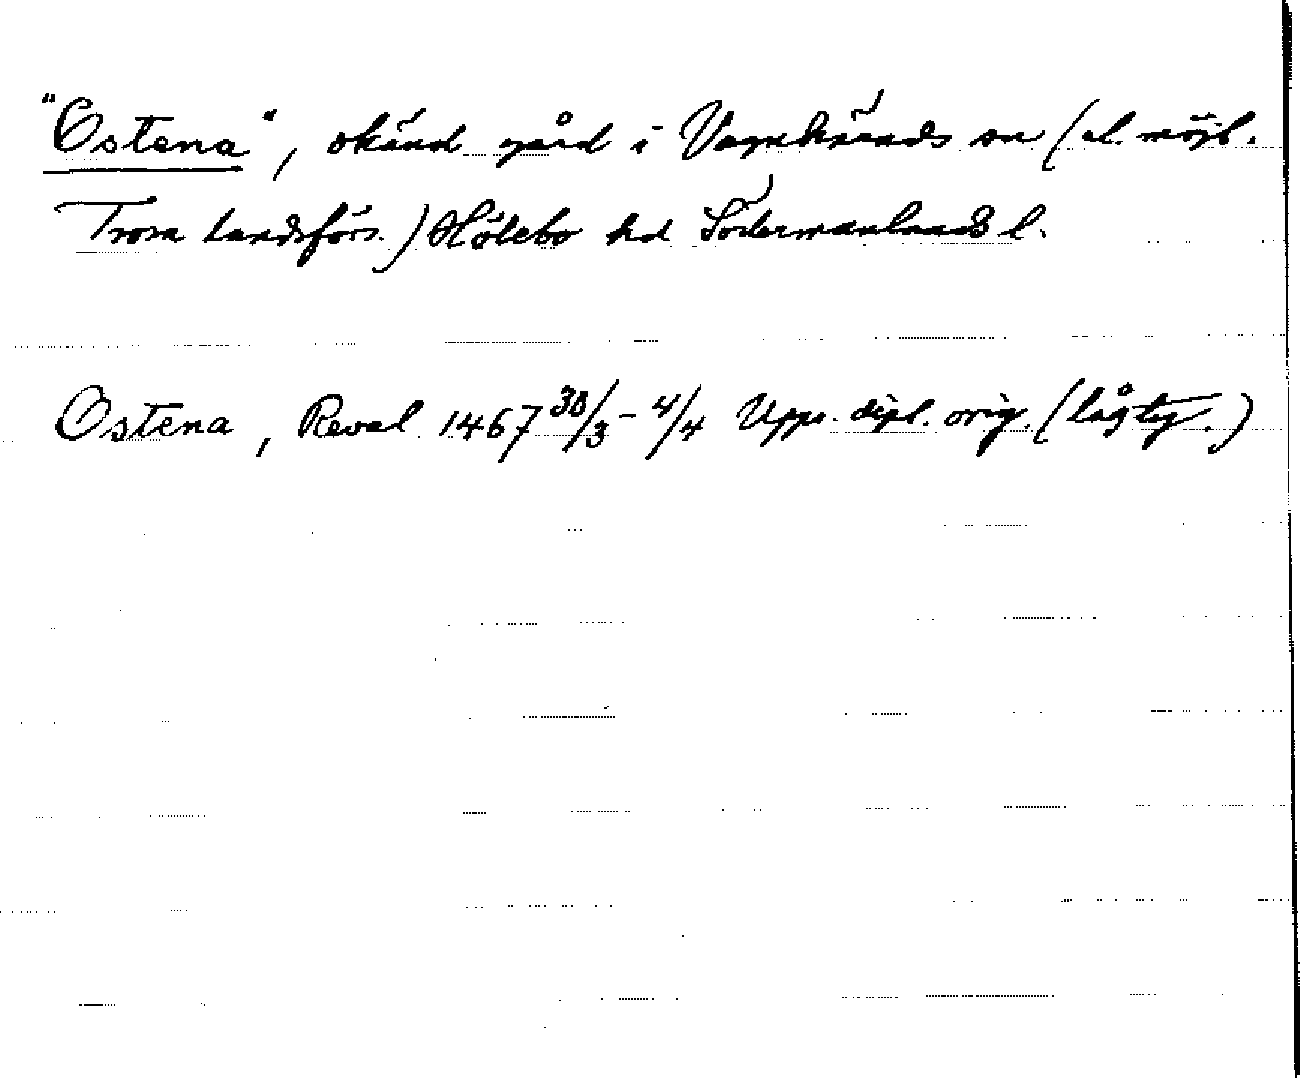 "Ostena", okänd gård i Vagnhärads sn (el. möjl.
Trosa landsförs.) Hölebo hd Södermanlands l.
Ostena, Reval 1467 30/3 - 4/4 Upps. dipl. orig. (lågty.)